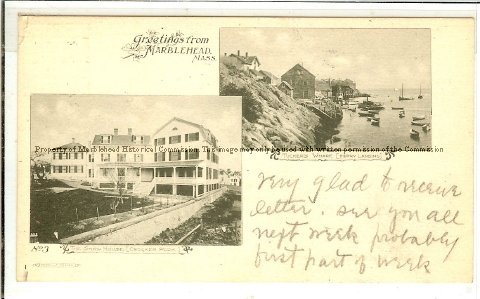 Greetings from
MARBLEHEAD,
MASS.
Property of Marblehead Historical Commission This image may only be used with written permission of the Commission
TUCKER'S WHARF. (FERRY LANDING)
Very glad to receive
letter. see you all
next week probably
first part of week
No. 3
THE GRAY HOUSE, (CROCKER PARK.)